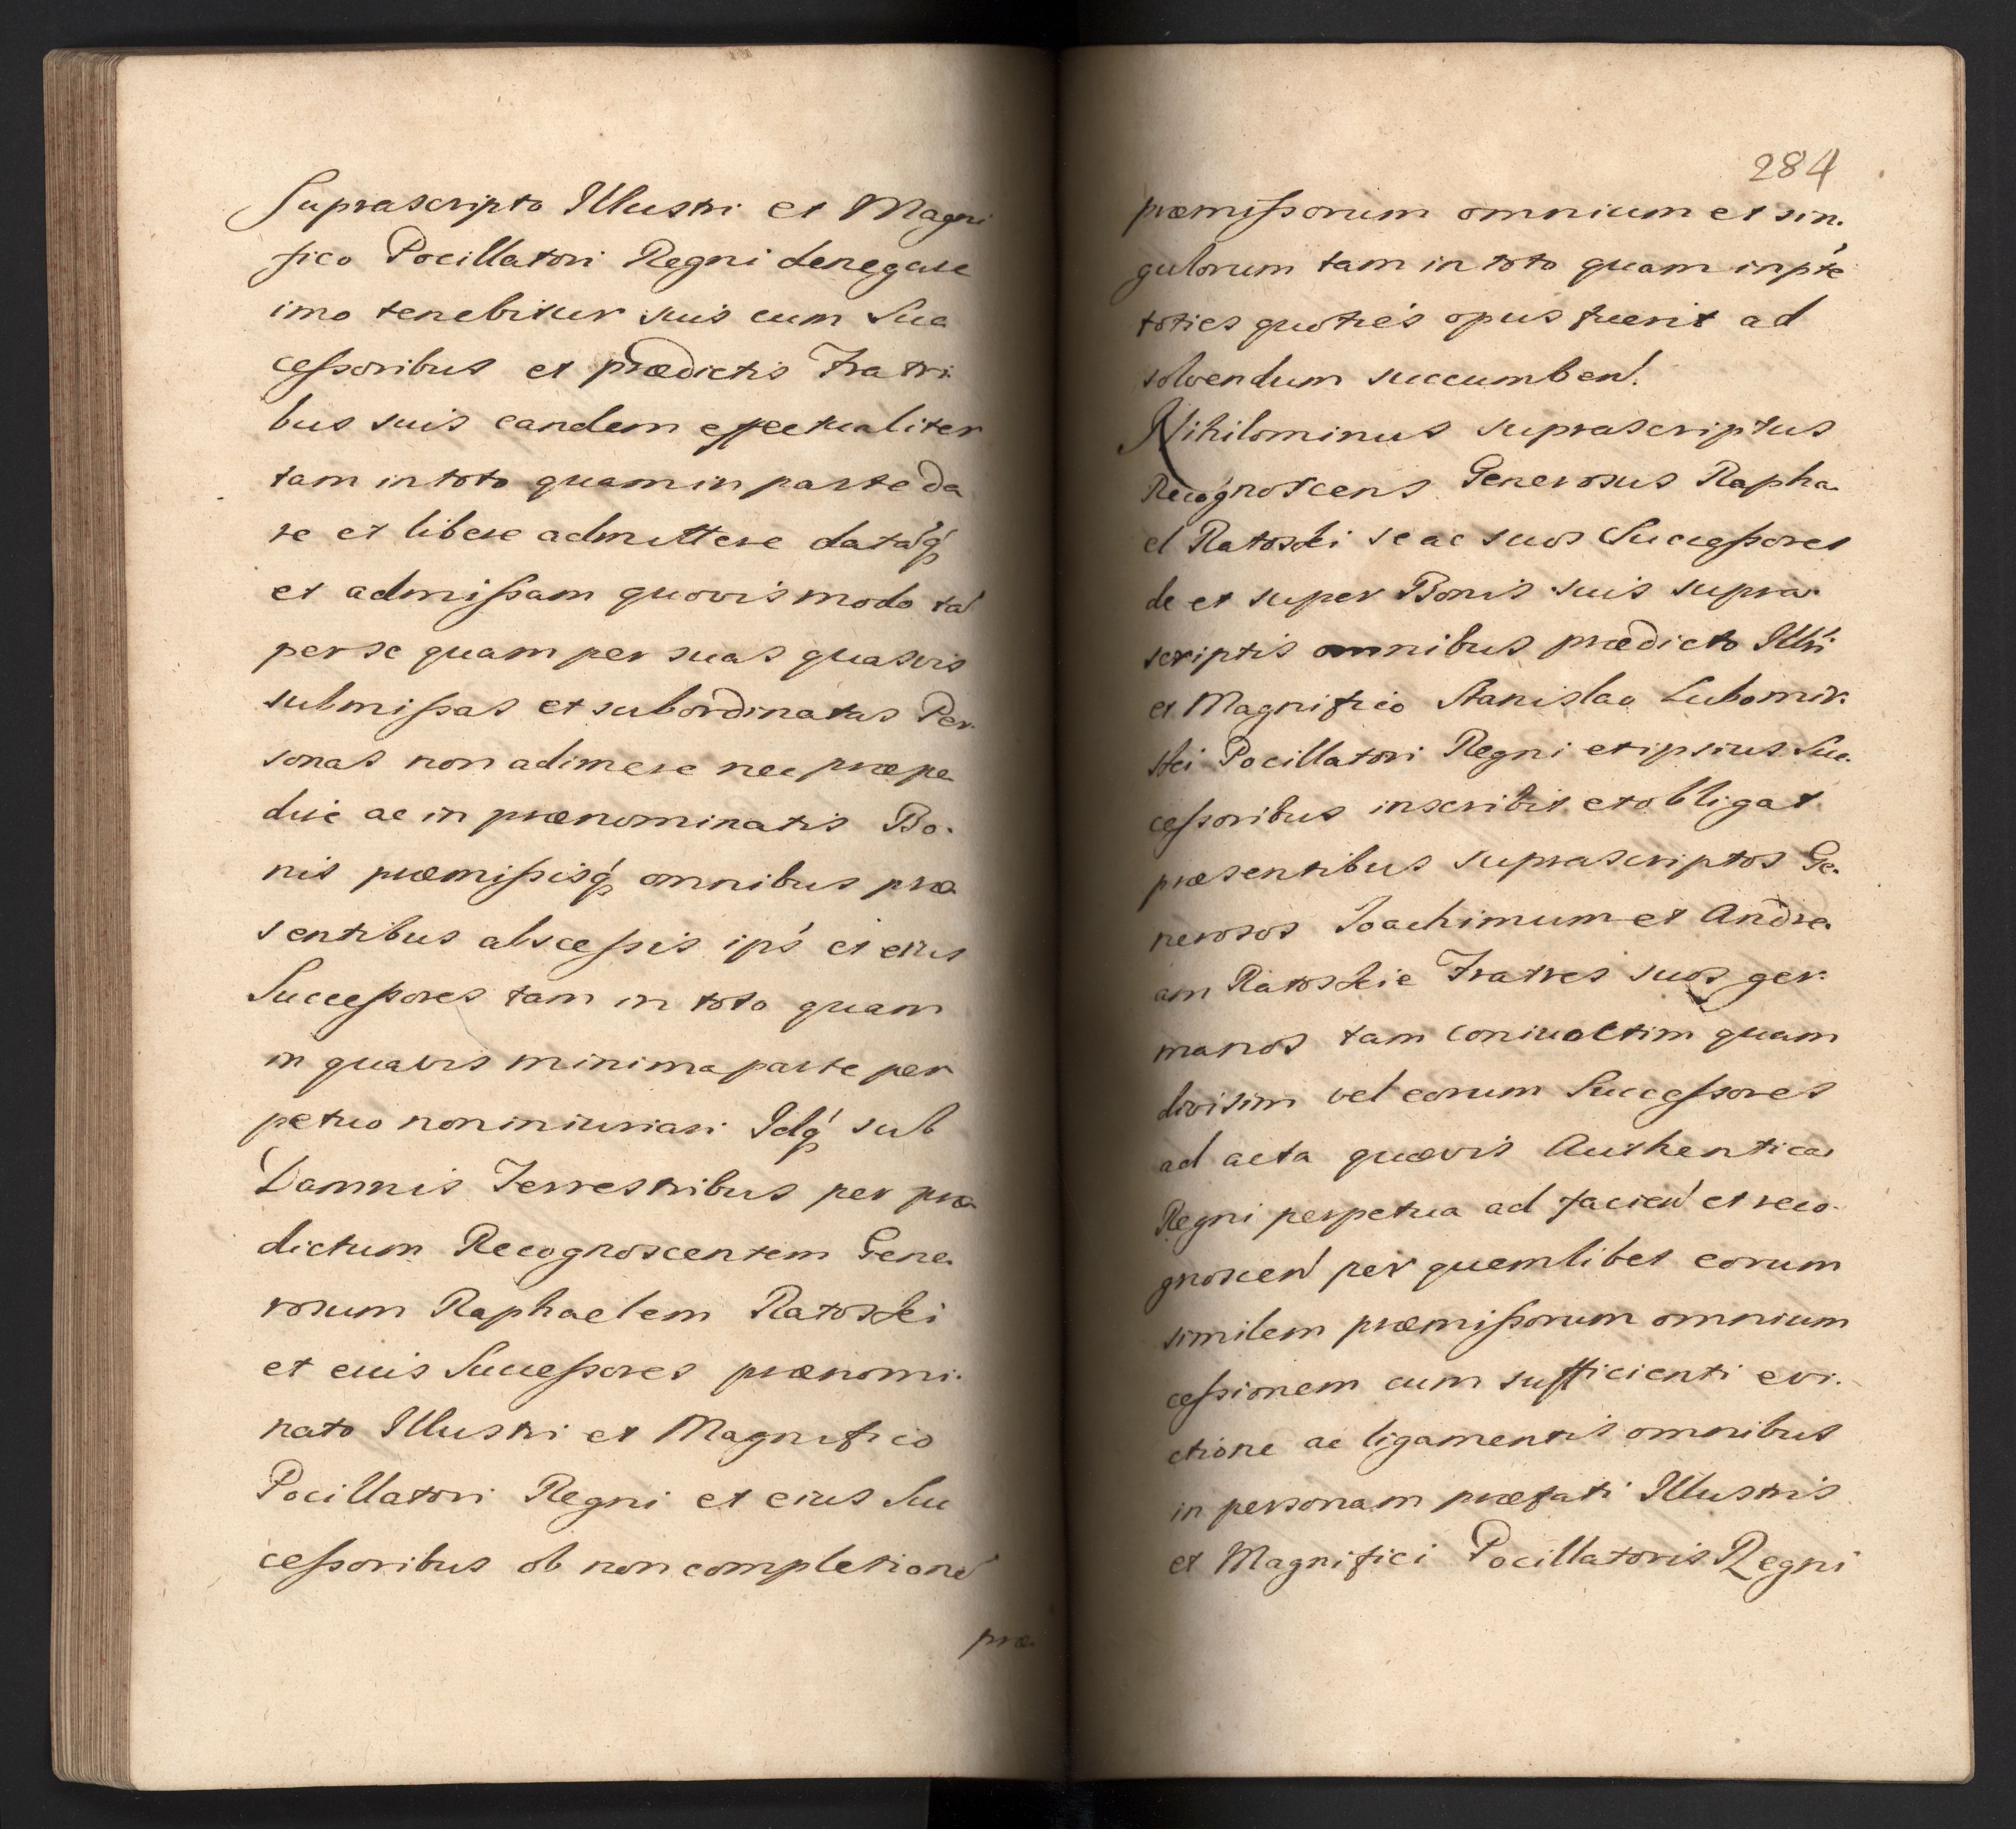 Suprascripto Illustri et Magni
fico Pocillatori Regni denegare
imo tenebitur suis cum Suc
cessoribus et prædictis Fratri
bus suis eandem effectualiter
tam in toto quam in parte da
re et libere admittere datáq́
et admissam quovis modo tá
per se quam per suas quasvis
submissas et subordinatas Per
sonas non adimere nec præpe
dire ac in prænominatis Bo
nis præmissisq́ omnibus præ
sentibus abscessis ips' et eius
Successores tam in toto quam
in quavis minima parte per
petuo non iniuriari Idq́ sub
Damnis Terrestribus per præ
dictum Recognoscentem Gene
rosum Raphaelem Ratoski
et euis Successores prænomi
nato Illustri et Magnifico
Pocillatori Regni et eius Suc
cessoribus ob non completioné
præ
284
præmissorum omnium et sin.
gulorum tam in toto quam in pŕte
toties quoties opus fuerit ad
solvendum succumben'.
Nihilominus suprascriptus
Recognoscens Generosus Rapha
el Ratoski se ac suos Successores
de et super Bonis suis supra
scriptis omnibus prædicto Illŕi
et Magnifico Stanislao Lubomir.
ski Pocillatori Regni et ipsius Suc.
cessoribus inscribit et obligat
præsentibus suprascriptos Ge.
nerosos Ioachimum et Andre
am Ratoskie Fratres suos ger
manos tam coniuactim quam
divisim vel eorum Successores
ad acta quævis Authentica
Regni perpetua ad facien' et reco
gnoscen' per quemlibet eorum
similem præmissorum omnium
cessionem cum sufficienti evi.
ctione ac ligamentis omnibus
in personam præfati Illustris
et Magnifici Pocillatoris Regni